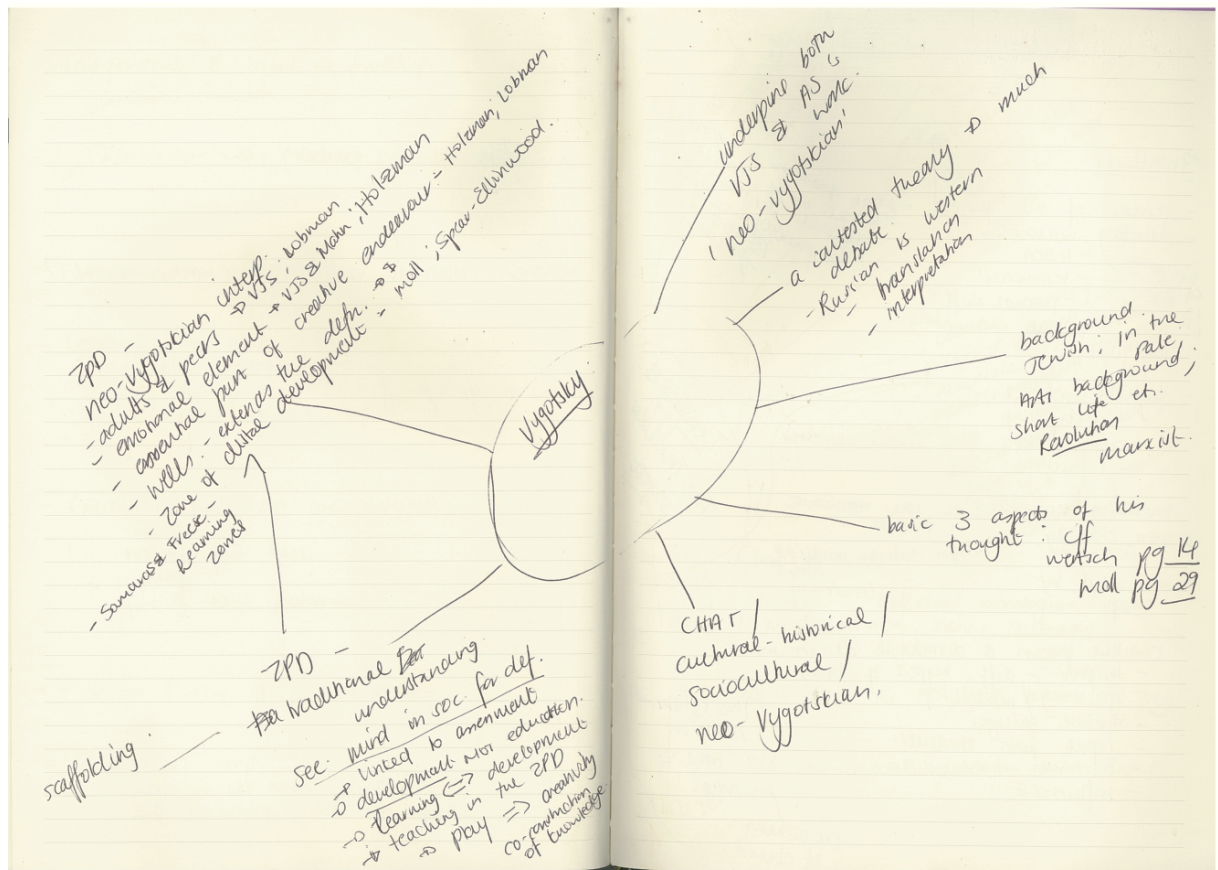 Vygotsky
ZPD -
neo-vygotskian interp.
- adults & peers → VJS, Lobman
- emotional element → VJS & Mahn; Holzman
- essential part of creative endeavour - Holzman, Lobman
- Wells - extends the defn. →
- zone of cultural development - Moll; Spear-Ellinwood.
- Samaras & Freese -
learning
zones
ZPD -
traditional
understanding
see mind in soc. for def.
→ linked to assessment
→ development. NOT education.
→ learning <=> development
→ teaching in the ZPD
→ play => creativity
co-construction
of knowledge.
scaffolding
underpins both
VJS & AS's
work.
'neo-vygotskian'
a contested theory → much
debate.
- Russian vs western
- translation
- interpretation
background.
Jewish, in the
Pale,
background,
short life etc.
Revolution
marxist.
basic 3 aspects of his
thought: cff
wertsch pg 14
moll pg 29
CHAT /
cultural-historical /
sociocultural /
neo-vygotskian.